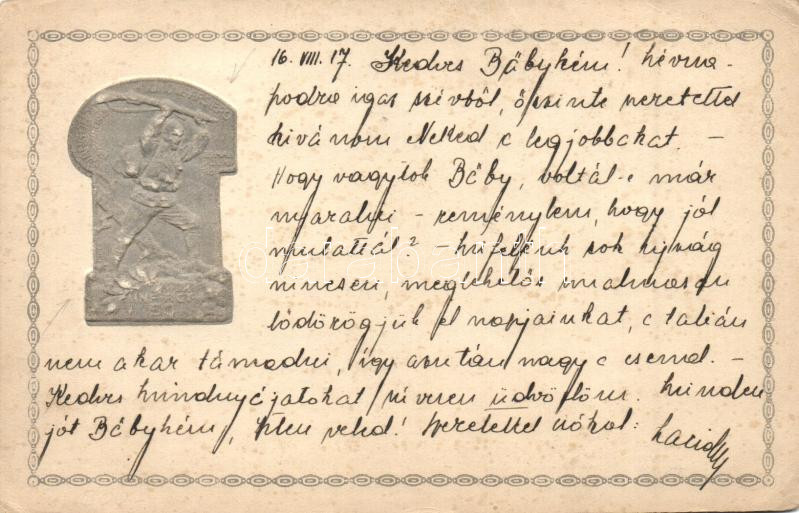 16. VIII. 17. Kedves Bäbykém! névna-
podra igaz szívből, őszinte szeretettel
kivánom Neked a legjobbakat. —
Hogy vagytok Bäby, voltál-e már
nyaralni - reménylem, hogy jól
mulattál? - mifelénk sok ujság
nincsen, meglehetős unalmasan
lődörögjük el napjainkat, a talián
nem akar támadni, így azután nagy a csend. —
Kedves mindnyájatokat szívesen üdvözlöm. Minden
jót Bäbykém, Isten veled! Szeretettel csókol: